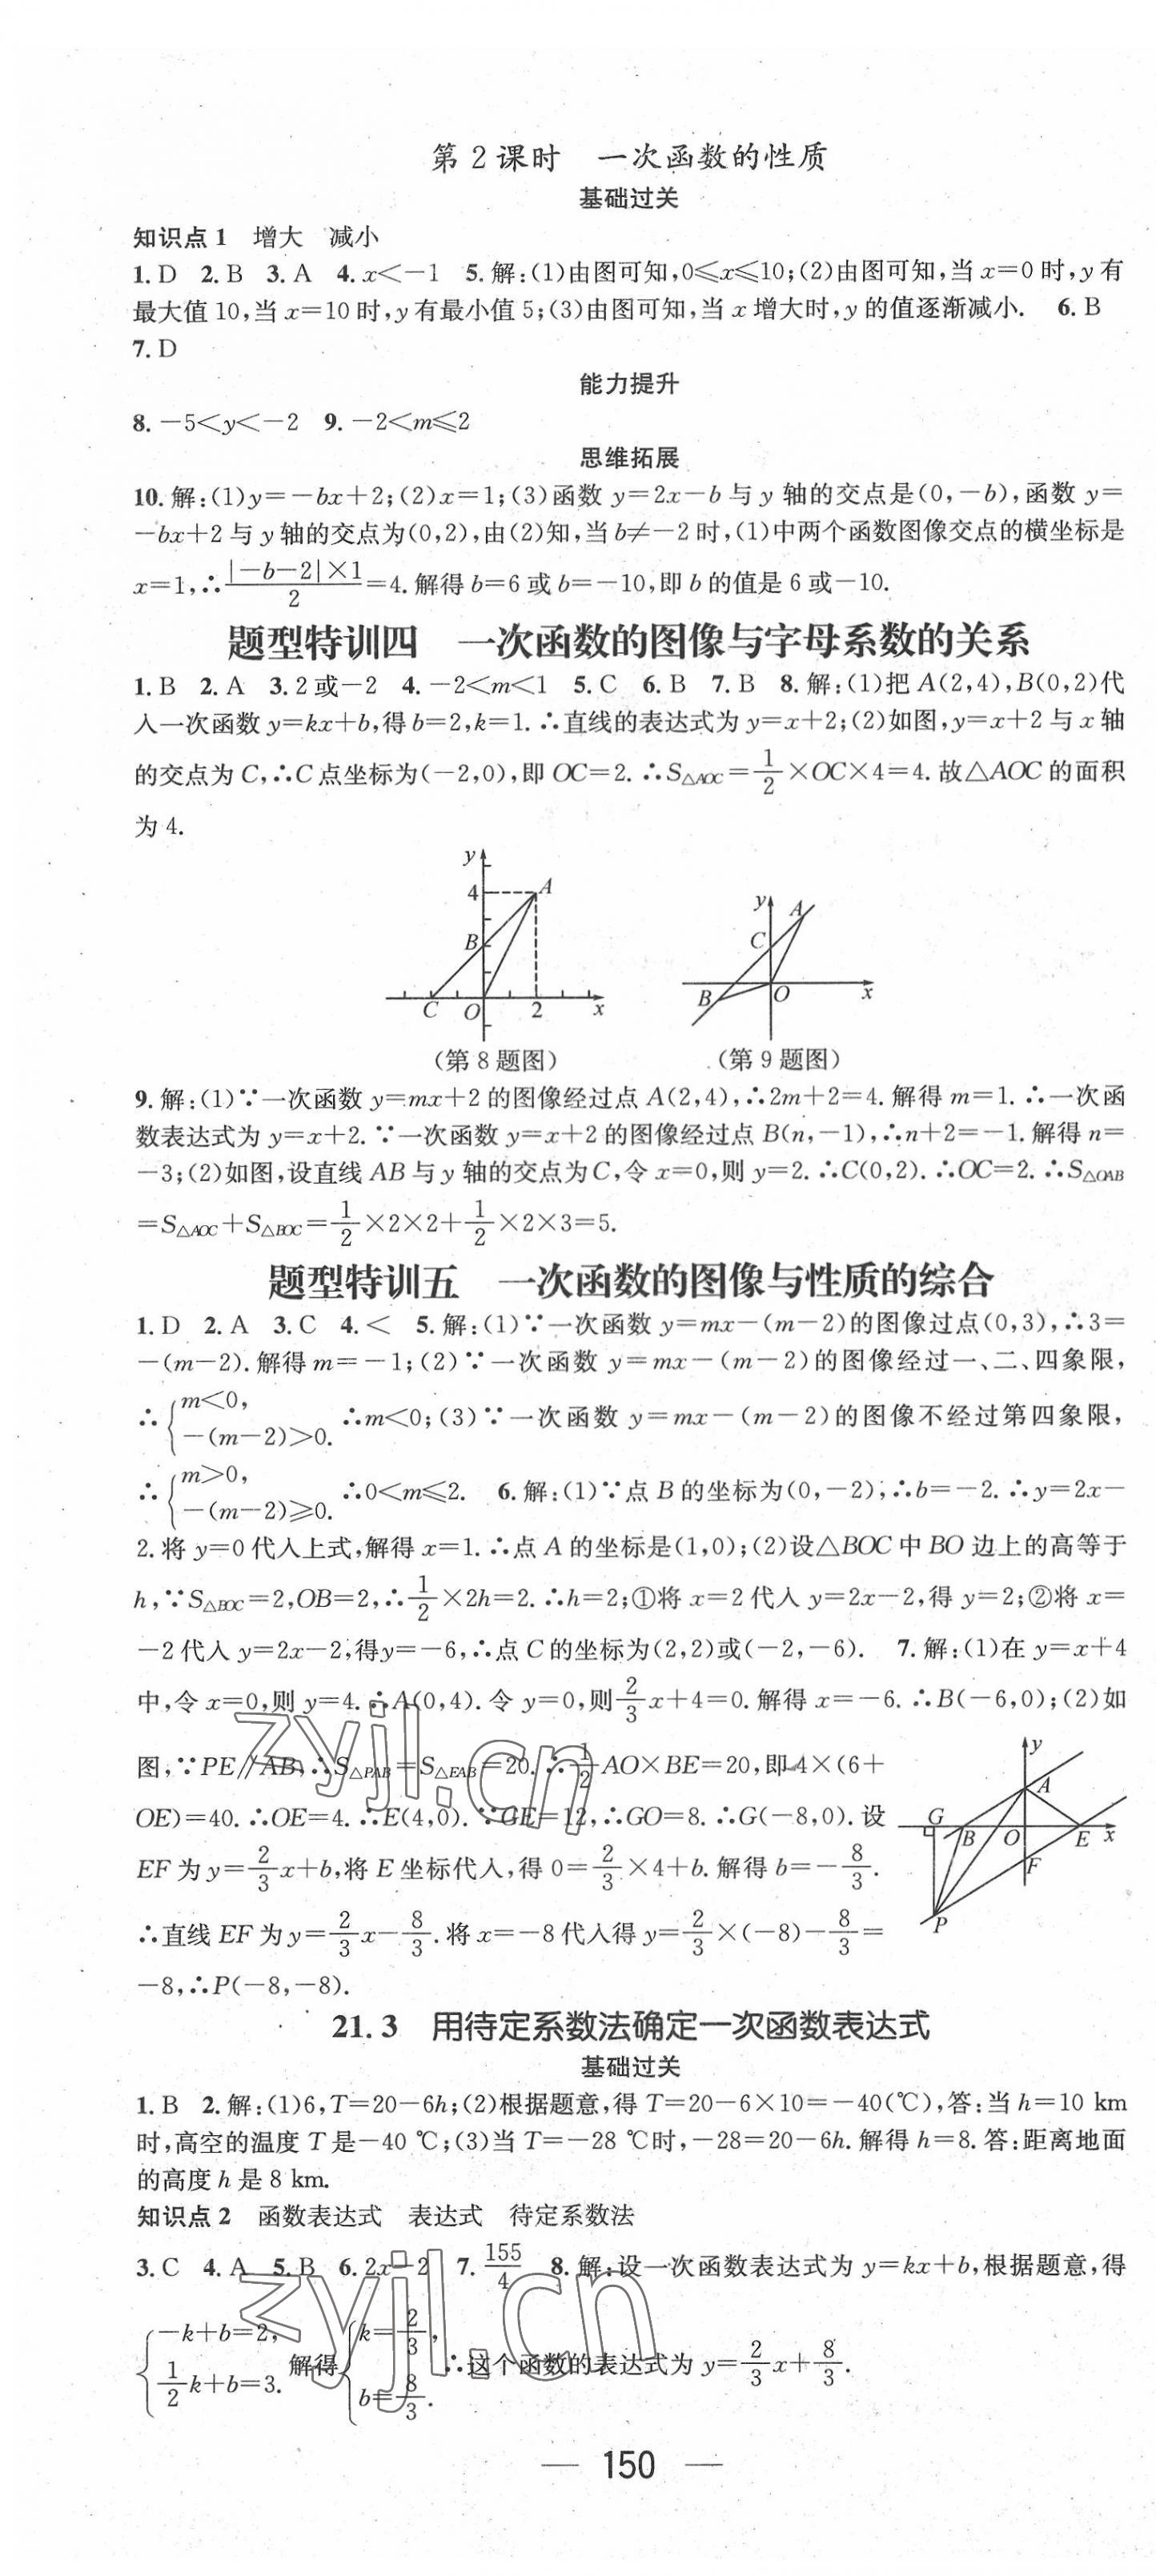 第2课时　一次函数的性质
基础过关
知识点1　增大　减小
1. D　2. B　3. A　4. x<-1　5. 解:(1)由图可知,0⩽x⩽10;(2)由图可知,当x=0时,y有
最大值10,当x=10时,y有最小值5;(3)由图可知,当x增大时,y的值逐渐减小.　6. B
7. D
能力提升
8. -5<y<-2　9. -2<m⩽2
思维拓展
10. 解:(1)y=-bx+2;(2)x=1;(3)函数y=2x-b与y轴的交点是(0,-b),函数y=
-bx+2与y轴的交点为(0,2),由(2)知,当b≠-2时,(1)中两个函数图像交点的横坐标是
x=1,∴|-b-2|×1/2=4.解得b=6或b=-10,即b的值是6或-10.
题型特训四　一次函数的图像与字母系数的关系
1. B　2. A　3. 2或-2　4. -2<m<1　5. C　6. B　7. B　8. 解:(1)把A(2,4),B(0,2)代
入一次函数y=kx+b,得b=2,k=1.∴直线的表达式为y=x+2;(2)如图,y=x+2与x轴
的交点为C,∴C点坐标为(-2,0),即OC=2.∴S△AOC=1/2×OC×4=4.故△AOC的面积
为4.
y
4
A
B
C
O
2
x
(第8题图)
y
A
C
B
O
x
(第9题图)
9. 解:(1)∵一次函数y=mx+2的图像经过点A(2,4),∴2m+2=4.解得m=1.∴一次函
数表达式为y=x+2.∵一次函数y=x+2的图像经过点B(n,-1),∴n+2=-1.解得n=
-3;(2)如图,设直线AB与y轴的交点为C,令x=0,则y=2.∴C(0,2).∴OC=2.∴S△OAB
=S△AOC+S△BOC=1/2×2×2+1/2×2×3=5.
题型特训五　一次函数的图像与性质的综合
1. D　2. A　3. C　4. <　5. 解:(1)∵一次函数y=mx-(m-2)的图像过点(0,3),∴3=
-(m-2).解得m=-1;(2)∵一次函数y=mx-(m-2)的图像经过一、二、四象限,
∴{m<0, -(m-2)>0. ∴m<0;(3)∵一次函数y=mx-(m-2)的图像不经过第四象限,
∴{m>0, -(m-2)⩾0. ∴0<m⩽2.　6. 解:(1)∵点B的坐标为(0,-2),∴b=-2.∴y=2x-
2.将y=0代入上式,解得x=1.∴点A的坐标是(1,0);(2)设△BOC中BO边上的高等于
h,∵S△BOC=2,OB=2,∴1/2×2h=2.∴h=2;①将x=2代入y=2x-2,得y=2;②将x=
-2代入y=2x-2,得y=-6,∴点C的坐标为(2,2)或(-2,-6).　7. 解:(1)在y=x+4
中,令x=0,则y=4.∴A(0,4).令y=0,则2/3x+4=0.解得x=-6.∴B(-6,0);(2)如
图,∵PE∥AB,∴S△PAB=S△EAB=20.∴1/2AO×BE=20,即4×(6+
OE)=40.∴OE=4.∴E(4,0).∵GE=12,∴GO=8.∴G(-8,0).设
EF为y=2/3x+b,将E坐标代入,得0=2/3×4+b.解得b=-8/3.
∴直线EF为y=2/3x-8/3.将x=-8代入得y=2/3×(-8)-8/3=
-8,∴P(-8,-8).
y
A
G
B
O
E
x
F
P
21.3　用待定系数法确定一次函数表达式
基础过关
1. B　2. 解:(1)6,T=20-6h;(2)根据题意,得T=20-6×10=-40(℃),答:当h=10 km
时,高空的温度T是-40 ℃;(3)当T=-28 ℃时,-28=20-6h.解得h=8.答:距离地面
的高度h是8 km.
知识点2　函数表达式　表达式　待定系数法
3. C　4. A　5. B　6. 2x-2　7. 155/4　8. 解:设一次函数表达式为y=kx+b,根据题意,得
{-k+b=2, 1/2k+b=3. 解得{k=2/3, b=8/3. ∴这个函数的表达式为y=2/3x+8/3.
— 150 —
zyjl.cn
zyjl.cn